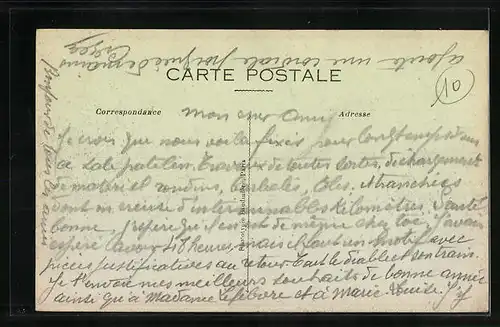 ajoute une cordiale poignée de mains
CARTE POSTALE
10
Correspondance
Adresse
Mon cher Ami
Je crois que nous voilà fixés pour longtemps dans
ce sale patelin. Travaux de toutes sortes, déchargement
de matériel rondins, barbelés, tôles, et tranchées
dont on creuse d'interminables kilomètres. Santé
bonne j'espère qu'il en est de même chez toi. J'avais
espéré t'avoir 48 heures mais il faut un motif avec
pièces justificatives au retour. Tout le diable et son train.
Je t'envoie mes meilleurs souhaits de bonne année
ainsi qu'à Madame Lefebvre et à Marie-Louise.